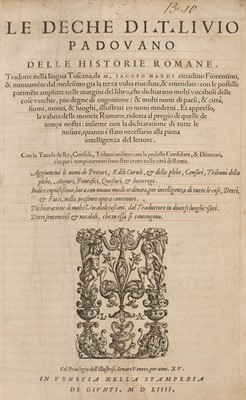 LE DECHE DI T. LIVIO
PADOVANO
DELLE HISTORIE ROMANE,
Tradotte nella lingua Toscana, da M. IACOPO NARDI cittadino Fiorentino,
& nuouamẽte dal medesimo gia la terza volta riuedute, & emendate: con le postille
parimẽte ampliate nelle margini del libro, che dichiarano molti vocaboli delle
cose vecchie, piu degne di cognitione: & molti nomi di paesi, & città,
fiumi, monti, & luoghi, illustrati co nomi moderni. Et appresso,
la valuta delle monete Romane, ridotta al pregio di quelle de
tempi nostri: insieme con la dichiaratione di tutte le
misure, quanto è stato necessario alla piena
intelligenza del lettore.
Con la Tauola de Re, Consoli, Tribuni militari con la podestà Consolare, & Dittatori,
che per i tempi correnti sono stati creati nella città di Roma.
Aggiuntoui li nomi de Pretori, Edili Curuli, & della plebe, Censori, Tribuni della
plebe, Auguri, Pontefici, Questori, & Interregi.
Indice copiosissimo, hora con nuouo modo ordinato, per intelligenza di tutte le cose, Detti,
& Fatti, nella presente opera contenuti.
Dichiaratione di molti Vocaboli toscani, dal Traduttore in diuersi luoghi vsati.
Detti sententiosi & notabili, che in essa si contengono.
Col Priuilegio dell'Illustriss. Senato Veneto, per anni. XV.
IN VENETIA NELLA STAMPERIA
DE GIVNTI. M D LIIII.